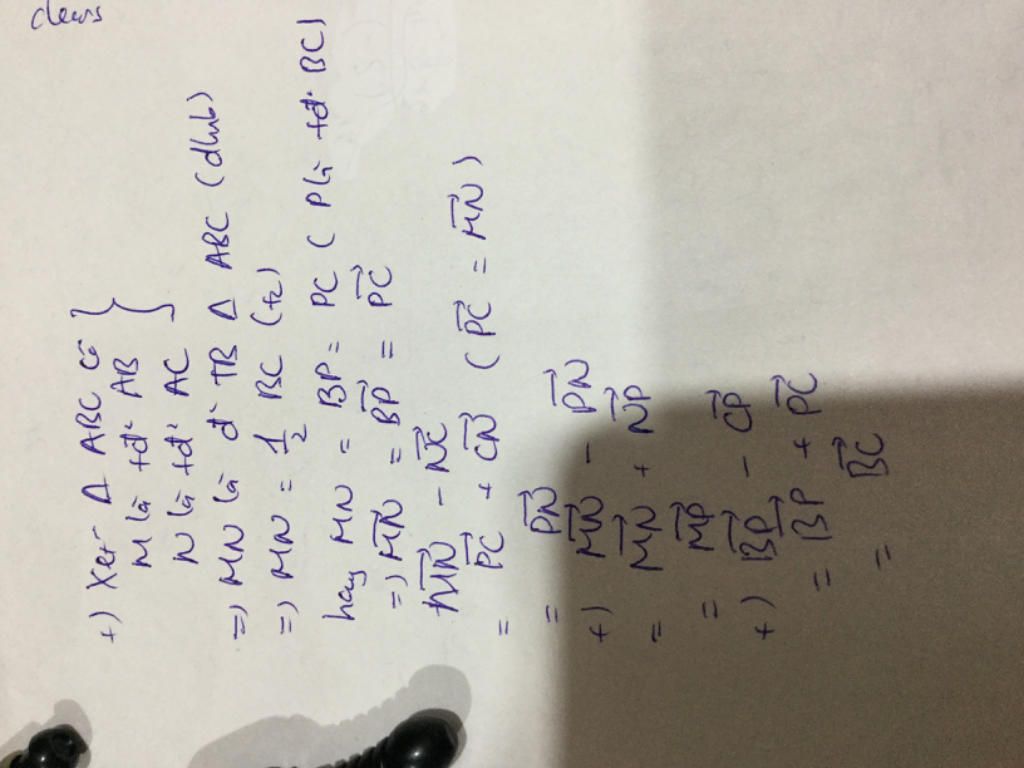 +) Xét Δ ABC có
M là tđ' AB }
N là tđ' AC
=) MN là đ' TB Δ ABC (dhnb)
=) MN = 1/2 BC (tc)
hay MN = BP = PC ( P là tđ' BC)
=) \overrightarrow{MN} = \overrightarrow{BP} = \overrightarrow{PC}
\overrightarrow{MN} - \overrightarrow{NC}
= \overrightarrow{PC} + \overrightarrow{CN} (\overrightarrow{PC} = \overrightarrow{MN})
= \overrightarrow{PN}
+) \overrightarrow{MN} - \overrightarrow{PN}
= \overrightarrow{MN} + \overrightarrow{NP}
= \overrightarrow{MP}
+) \overrightarrow{BP} - \overrightarrow{CP}
= \overrightarrow{BP} + \overrightarrow{PC}
= \overrightarrow{BC}